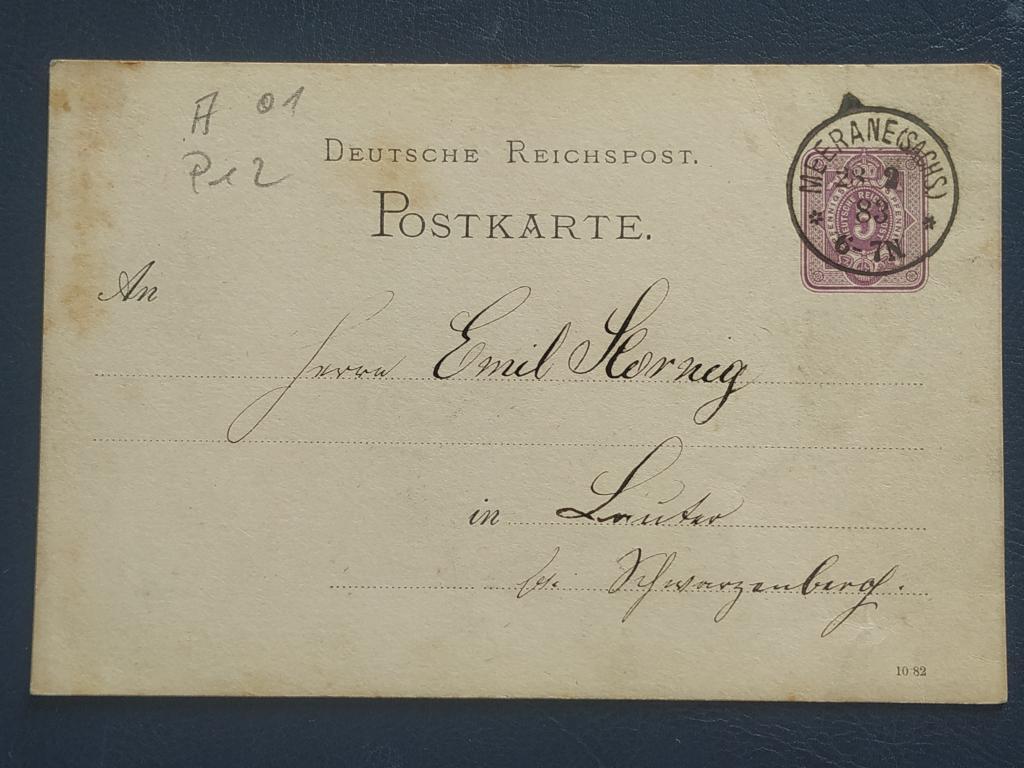 A 01
P12
DEUTSCHE REICHSPOST.
POSTKARTE.
MEERANE (SACHS)
28 2
83
6-7N
An
Herrn Emil Hornig
in Lauter
bei Schwarzenberg.
10 82